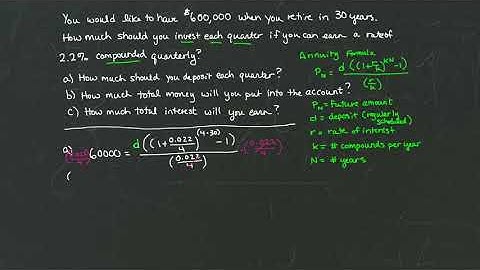 You would like to have $600,000 when you retire in 30 years.
How much should you invest each quarter if you can earn a rate of
2.2% compounded quarterly?
a) How much should you deposit each quarter?
b) How much total money will you put into the account?
c) How much total interest will you earn?
Annuity Formula
P_N = d((1+r/k)^(kN) -1) / (r/k)
P_N = Future amount
d = deposit (regularly scheduled)
r = rate of interest
k = # compounds per year
N = # years
a)
(0.022/4) 60000 = d((1+0.022/4)^(4·30) -1) / (0.022/4) · (0.022/4)
(